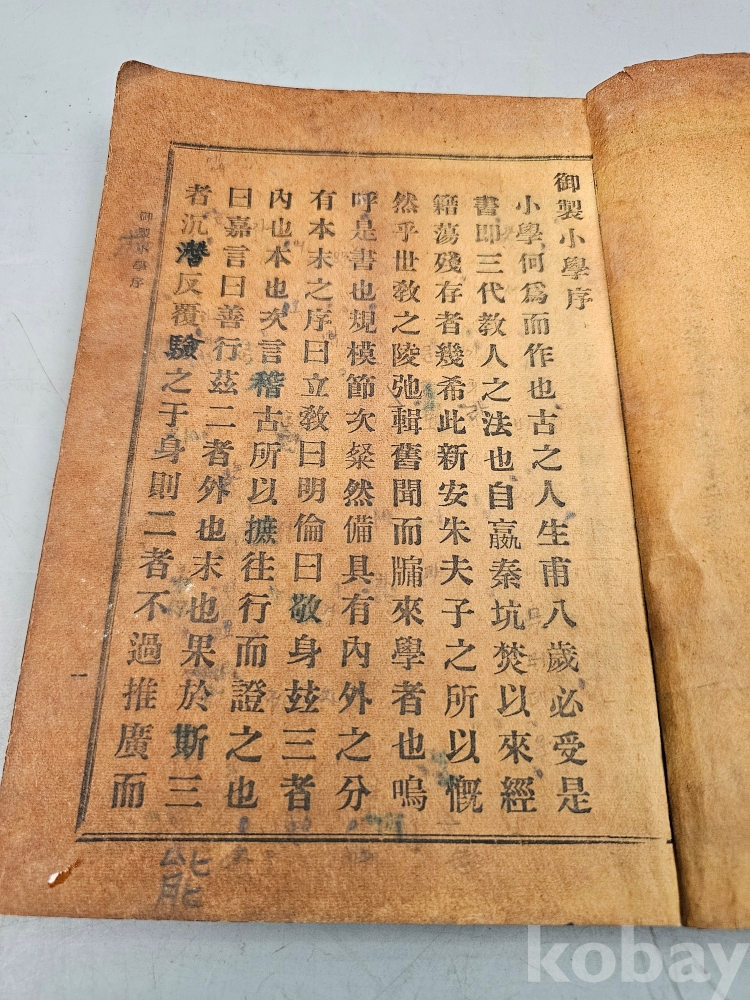 御製小學序
小學何爲而作也古之人生甫八歲必受是
書即三代敎人之法也自嬴秦坑焚以來經
籍蕩殘存者幾希此新安朱夫子之所以慨
然乎世敎之陵弛輯舊聞而牖來學者也嗚
呼是書也規模節次粲然備具有內外之分
有本末之序曰立敎曰明倫曰敬身玆三者
內也本也次言稽古所以摭往行而證之也
曰嘉言曰善行玆二者外也末也果於斯三
者沉潛反覆驗之于身則二者不過推廣而
御製小學序
一
能
kobay